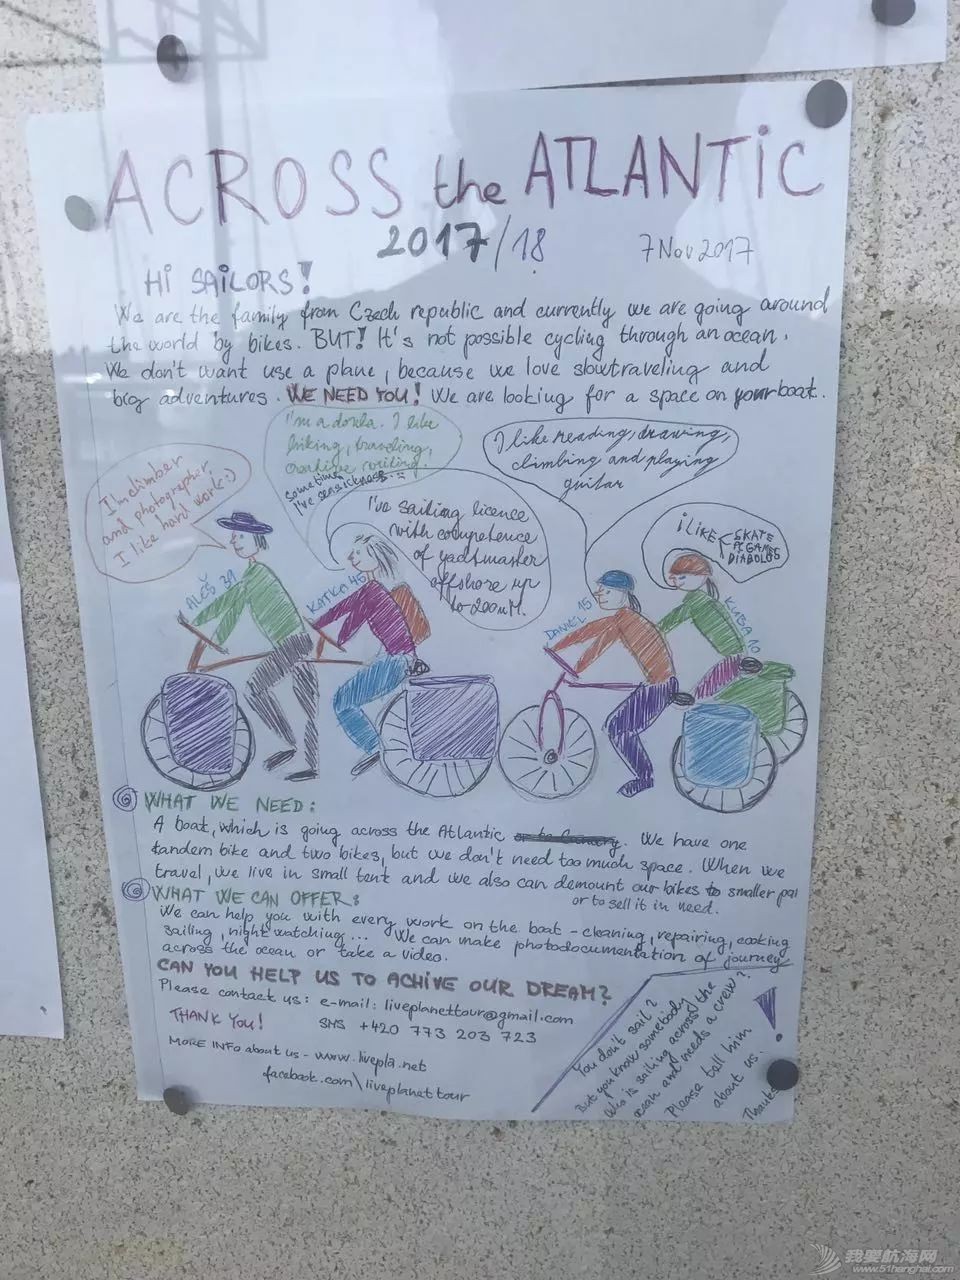 ACROSS the ATLANTIC
2017/18
7 Nov 2017
HI SAILORS!
We are the family from Czech republic and currently we are going around
the world by bikes. BUT! It's not possible cycling through an ocean.
We don't want use a plane, because we love slowtraveling and
big adventures. WE NEED YOU! We are looking for a space on your boat.
I'm climber
and photographer.
I like hard work :)
I'm a doula. I like
hiking, traveling,
creative writing.
Sometimes
I've seasickness.
I've sailing licence
with competence
of yachtmaster
offshore up
to 200 NM.
I like reading, drawing,
climbing and playing
guitar
I LIKE
SKATE
PC GAMES
DIABOLOS
ALEŠ 39
KATKA 45
DANIEL 15
KUBA 10
WHAT WE NEED:
A boat, which is going across the Atlantic. We have one
tandem bike and two bikes, but we don't need too much space. When we
travel, we live in small tent and we also can demount our bikes to smaller
or to sell it in need.
WHAT WE CAN OFFER:
We can help you with every work on the boat - cleaning, repairing, cooking
sailing, night watching... We can make photodocumentation of journey
across the ocean or take a video.
CAN YOU HELP US TO ACHIVE OUR DREAM?
Please contact us: e-mail: liveplanettour@gmail.com
THANK YOU! SMS +420 773 203 723
MORE INFO about us - www.livepla.net
facebook.com\liveplanettour
You don't sail?
But you know somebody
who is sailing across the
ocean and needs a crew?
Please tell him
about us.
Thanks
!
我要航海网
www.51hanghai.com